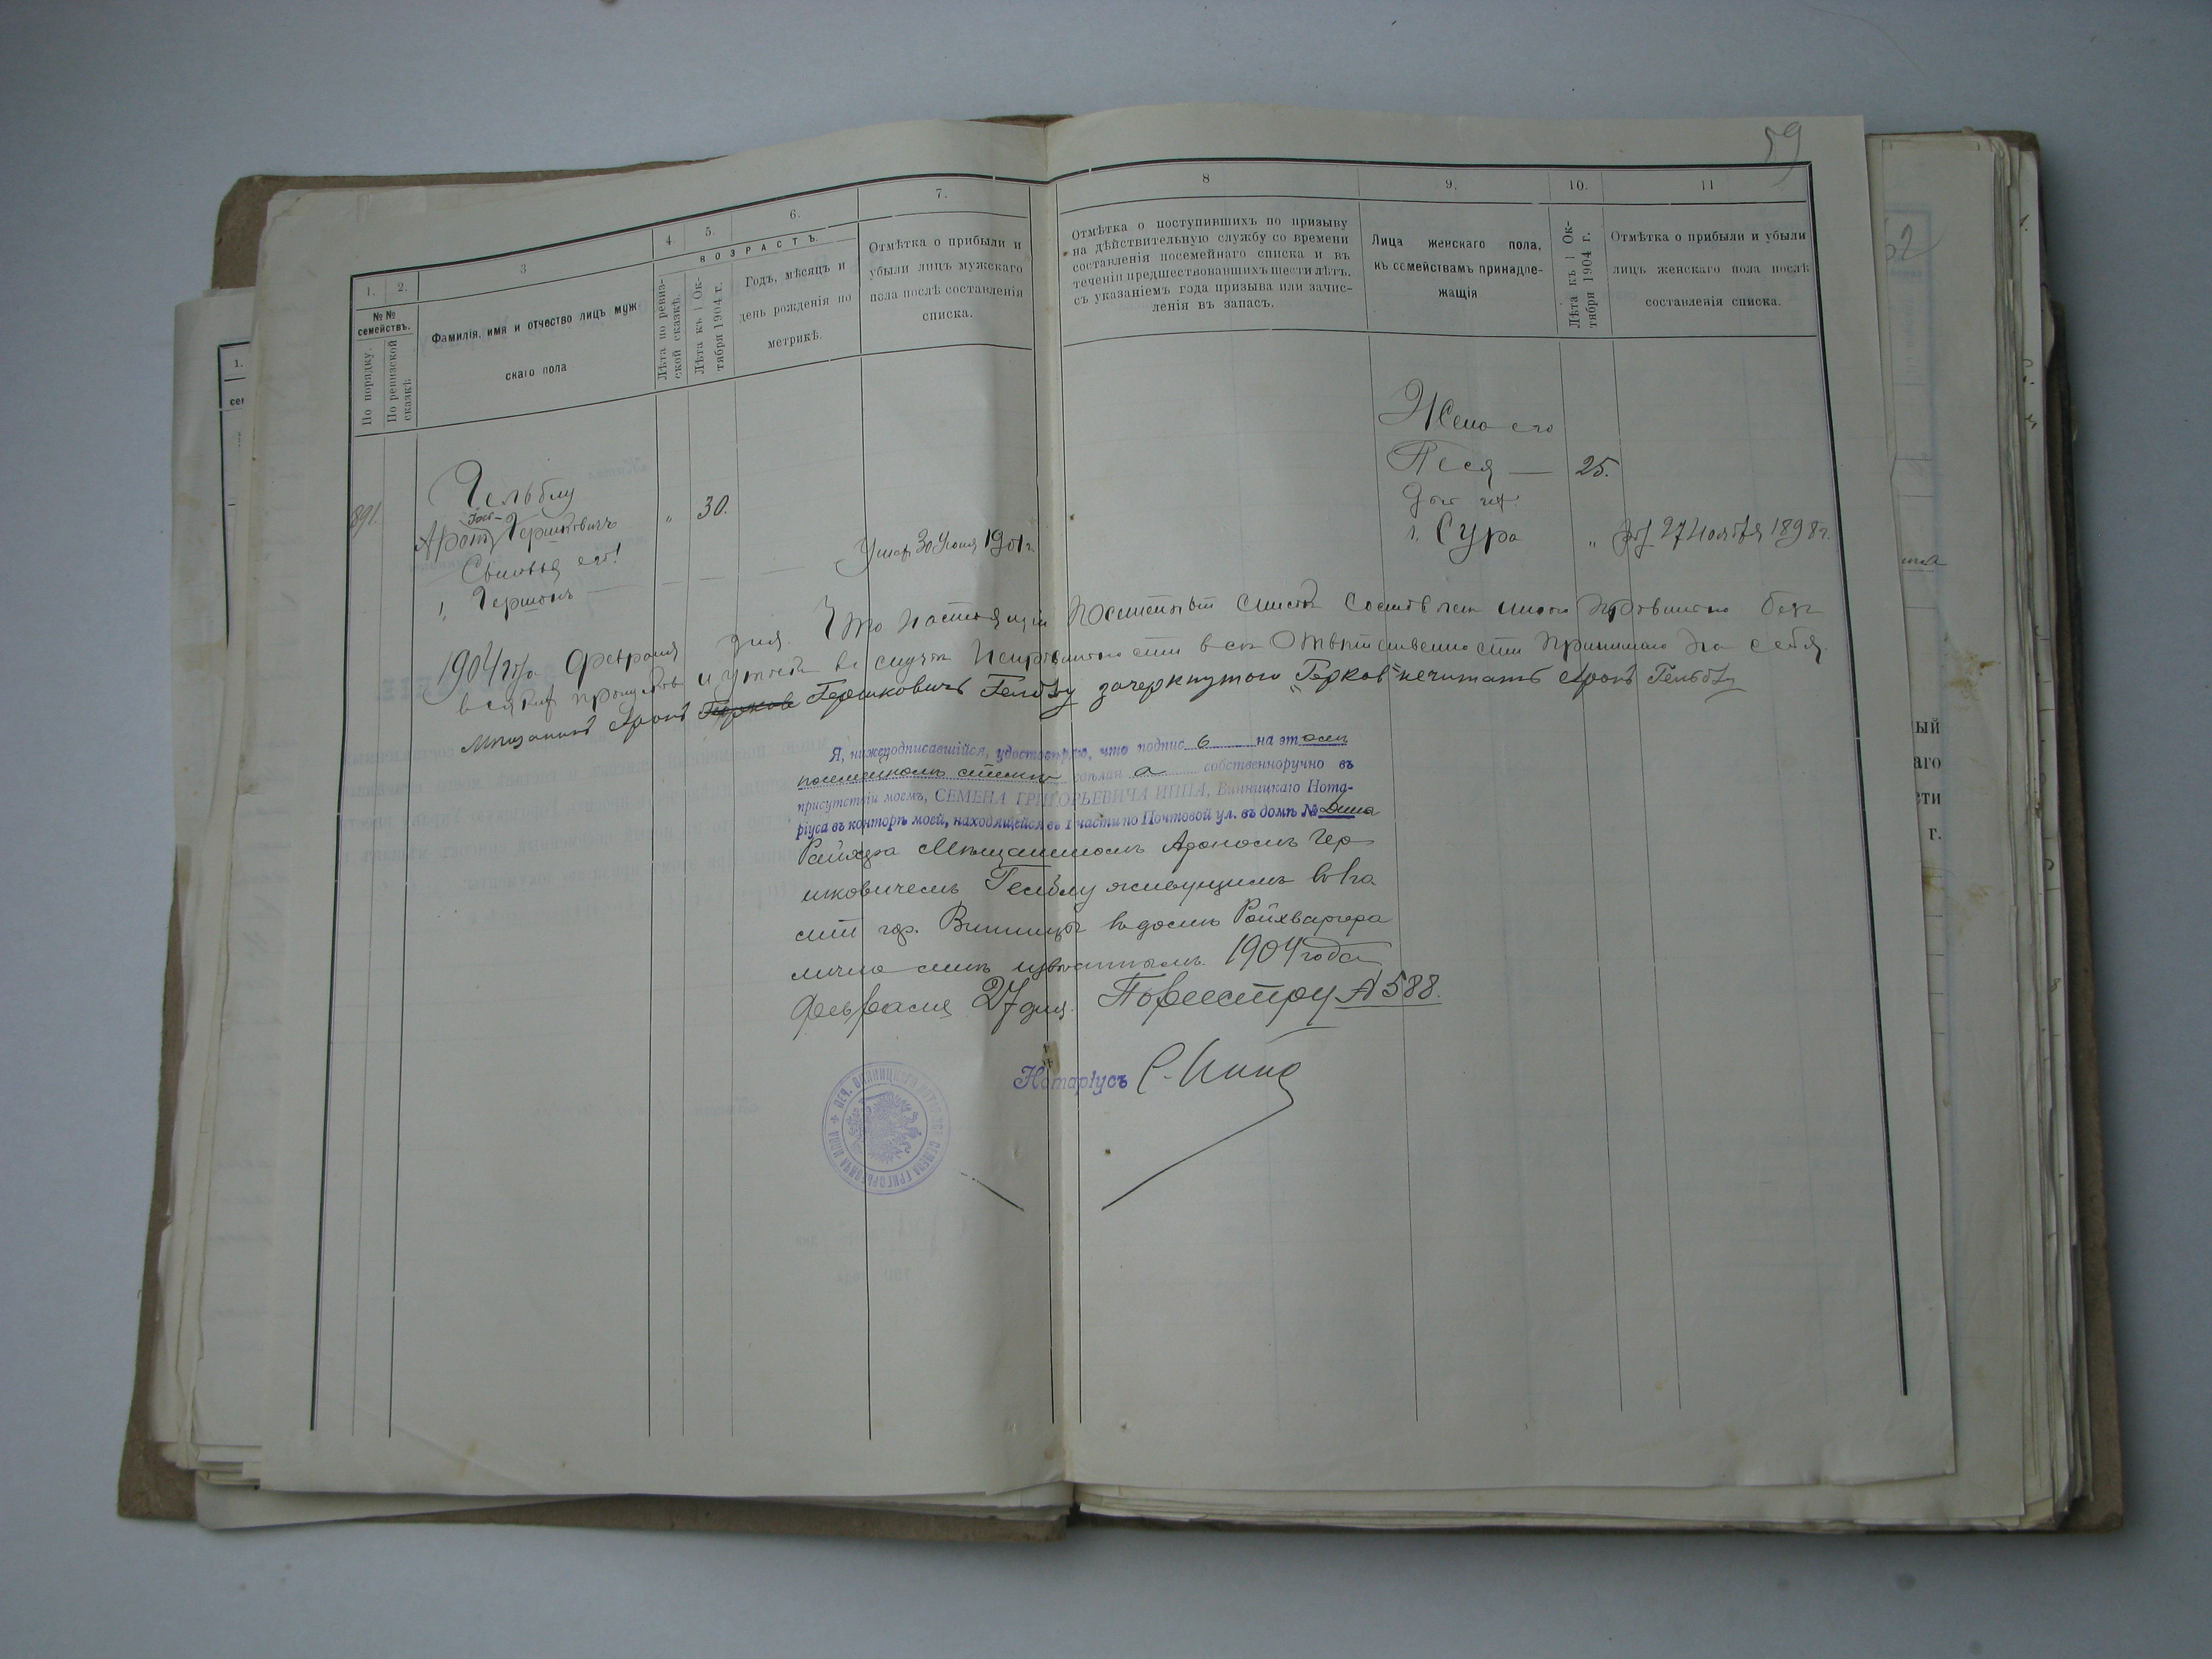 59
1.
2.
3
4
5.
6.
7.
8
9.
10.
11
№№ семействъ.
По порядку.
По ревизской сказкѣ.
Фамилія, имя и отчество лицъ муж-
скаго пола
ВОЗРАСТЪ.
Лѣта по ревиз-
ской сказкѣ.
Лѣта къ 1 Ок-
тября 1904 г.
Годъ, мѣсяцъ и
день рожденія по
метрикѣ.
Отмѣтка о прибыли и
убыли лицъ мужскаго
пола послѣ составленія
списка.
Отмѣтка о поступившихъ по призыву
на дѣйствительную службу со времени
составленія посемейнаго списка и въ
теченіи предшествовавшихъ шести лѣтъ,
съ указаніемъ года призыва или зачис-
ленія въ запасъ.
Лица женскаго пола,
къ семействамъ принадле-
жащія
Лѣта къ 1 Ок-
тября 1904 г.
Отмѣтка о прибыли и убыли
лицъ женскаго пола послѣ
составленія списка.
891.
Гельблу
Аронъ Гершковичъ
„ 30.
Сыновья его!
1, Гершонъ
Умер 30 Юня 1901 г.
Жена его
Песя — 25.
Доч их.
1. Сура „ 27 Ноября 1898 г.
1904 года Февраля дня. Что настоящій посемейный списокъ составленъ мною правильно безъ
всяких пропусков и утайки въ случаѣ неправильности всю отвѣтственность принимаю на себя.
Мѣщанинъ Аронъ Герков Гершковичъ Гельблу зачеркнутого „Герков" нечитать Аронъ Гельблу
Я, нижеподписавшійся, удостовѣряю, что подпис ь на этомъ
посемейномъ спискѣ сдѣлан а собственноручно въ
присутствіи моемъ, СЕМЕНА ГРИГОРЬЕВИЧА ИППА, Винницкаго Нота-
ріуса въ конторѣ моей, находящейся въ 1 части по Почтовой ул. въ домѣ №
мѣщаниномъ Арономъ Гер-
шковичемъ Гельблу живущимъ во 1 ча
сти гор. Винницы въ домѣ Ройхваргера
лично мнѣ извѣстнымъ. 1904 года
Февраля 27 дня. По реестру № 588.
Нотаріусъ С. Иппа
ПЕЧ. ВИННИЦКАГО НОТАРІУСА СЕМЕНА ГРИГОРЬЕВИЧА ИППА
1.
62
ый
аго
сти
г.